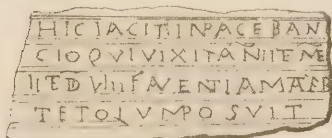 HIC IACIT IN PACE BAN
CIO QVI VIXIT ANII E ME
III ET D VIIII FAVENTIA MATEB
TETOLVM POSVIT